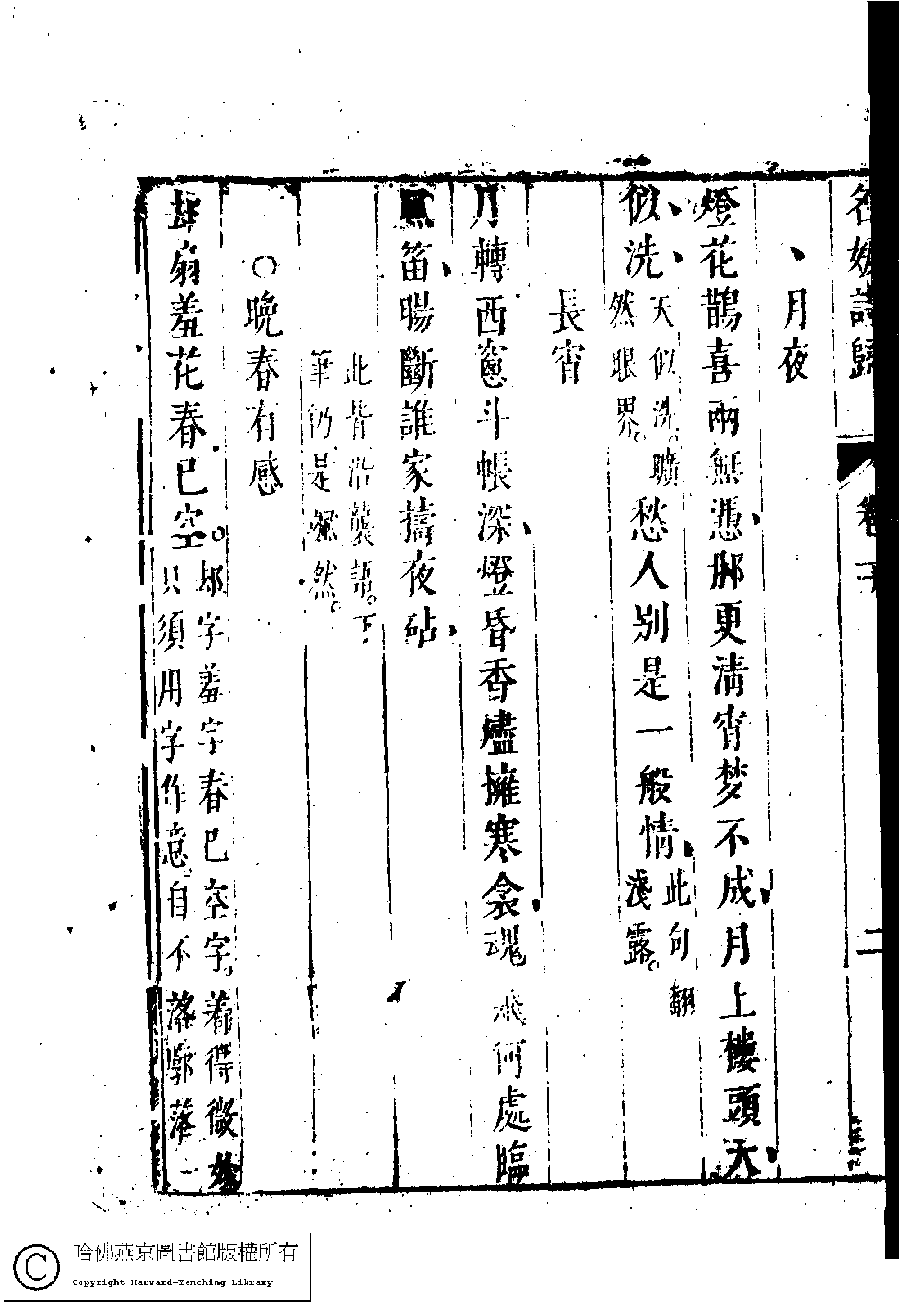 名媛詩歸 卷 二
月夜
燈花鵲喜兩無憑那更清宵梦不成月上樓頭天
似洗天似洗曠然眼界愁人別是一般情此句翻淺露
長宵
月轉西窻斗帳深燈昏香燼擁寒衾魂 何處臨
風笛腸斷誰家擣夜砧
此皆沿襲語下筆仍是 然
○晚春有感
却扇羞花春已空却字羞字春已空字着得微 只須用字作意自不落廓落一
哈佛燕京圖書館版權所有
Copyright Harvard-Yenching Library